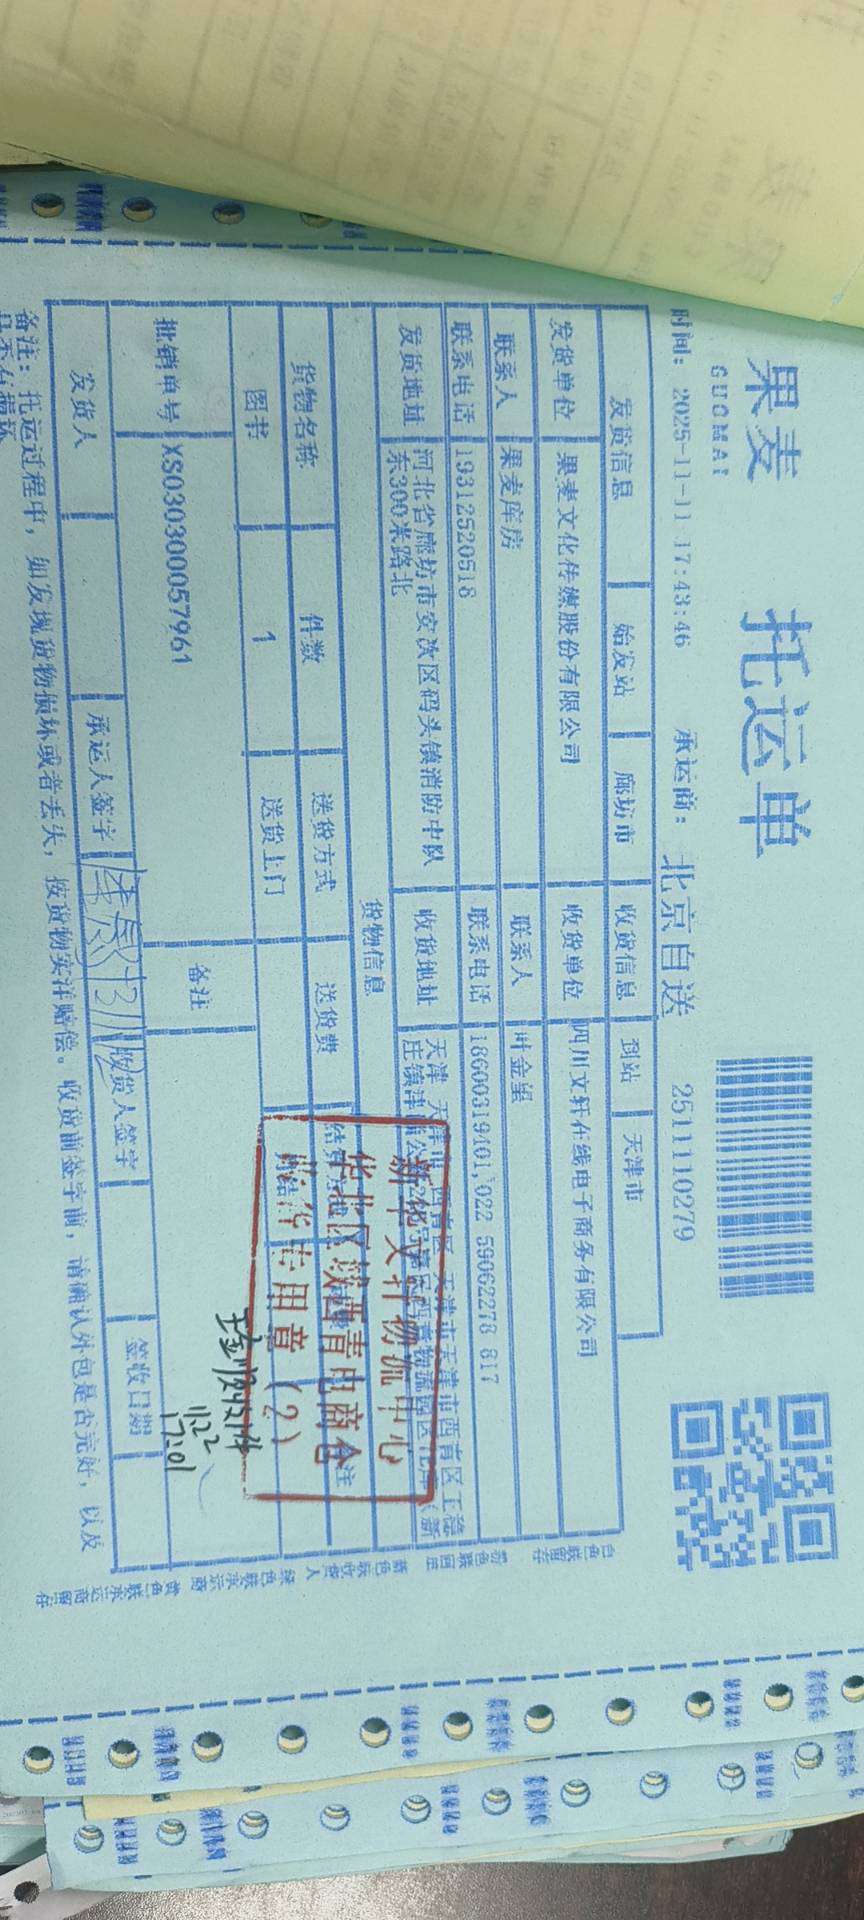 果麦
GUOMAI
托运单
时间: 2025-11-11 17:43:46 承运商: 北京自送 2511110279
发货信息 始发站 廊坊市 收货信息 到站 天津市
发货单位 果麦文化传媒股份有限公司 收货单位 四川文轩在线电子商务有限公司
联系人 果麦库房 联系人 叶金望
联系电话 19312520518 联系电话 18600319401,022 59062278 817
发货地址 河北省廊坊市安次区码头镇消防中队东300米路北 收货地址 天津 天津市 西青区 天津市天津市西青区王稳庄镇津
货物信息
货物名称 件数 送货方式 送货费
图书 1 送货上门
批销单号 XS030300057961 备注
发货人 承运人签字 收货人签字 签收日期
备注: 托运过程中, 如发现货物损坏或者丢失, 按货物实洋赔偿。收货前签字前, 请确认外包是否完好, 以及
新华文轩物流中心
华北区域西青电商仓
收货专用章 (2)
11.22
17:01
白色联留存